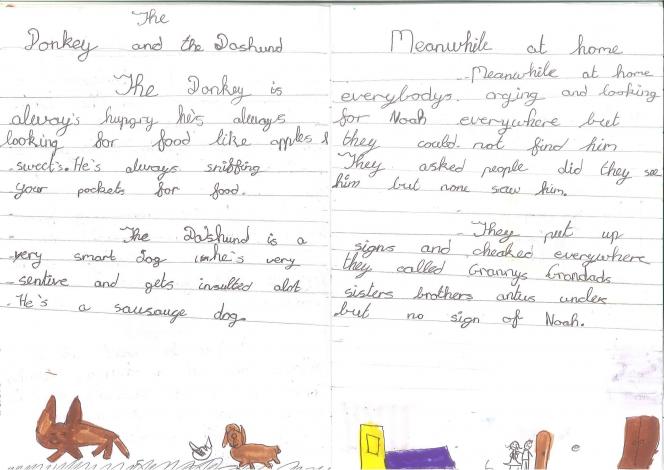 The
Donkey and the Dashund
The Donkey is
always hungry he's always
looking for food like apples &
sweets. He's always sniffing
your pockets for food.
The Dashund is a
very smart dog he's very
sentive and gets insulted alot
He's a sausauge dog.
Meanwhile at home
Meanwhile at home
everybodys. arging and looking
for Noah everywhere but
they could not find him
They asked people did they see
him but none saw him.
They put up
signs and cheaked everywhere
they called Grannys Grandads
sisters brothers antus uncles
but no sign of Noah.